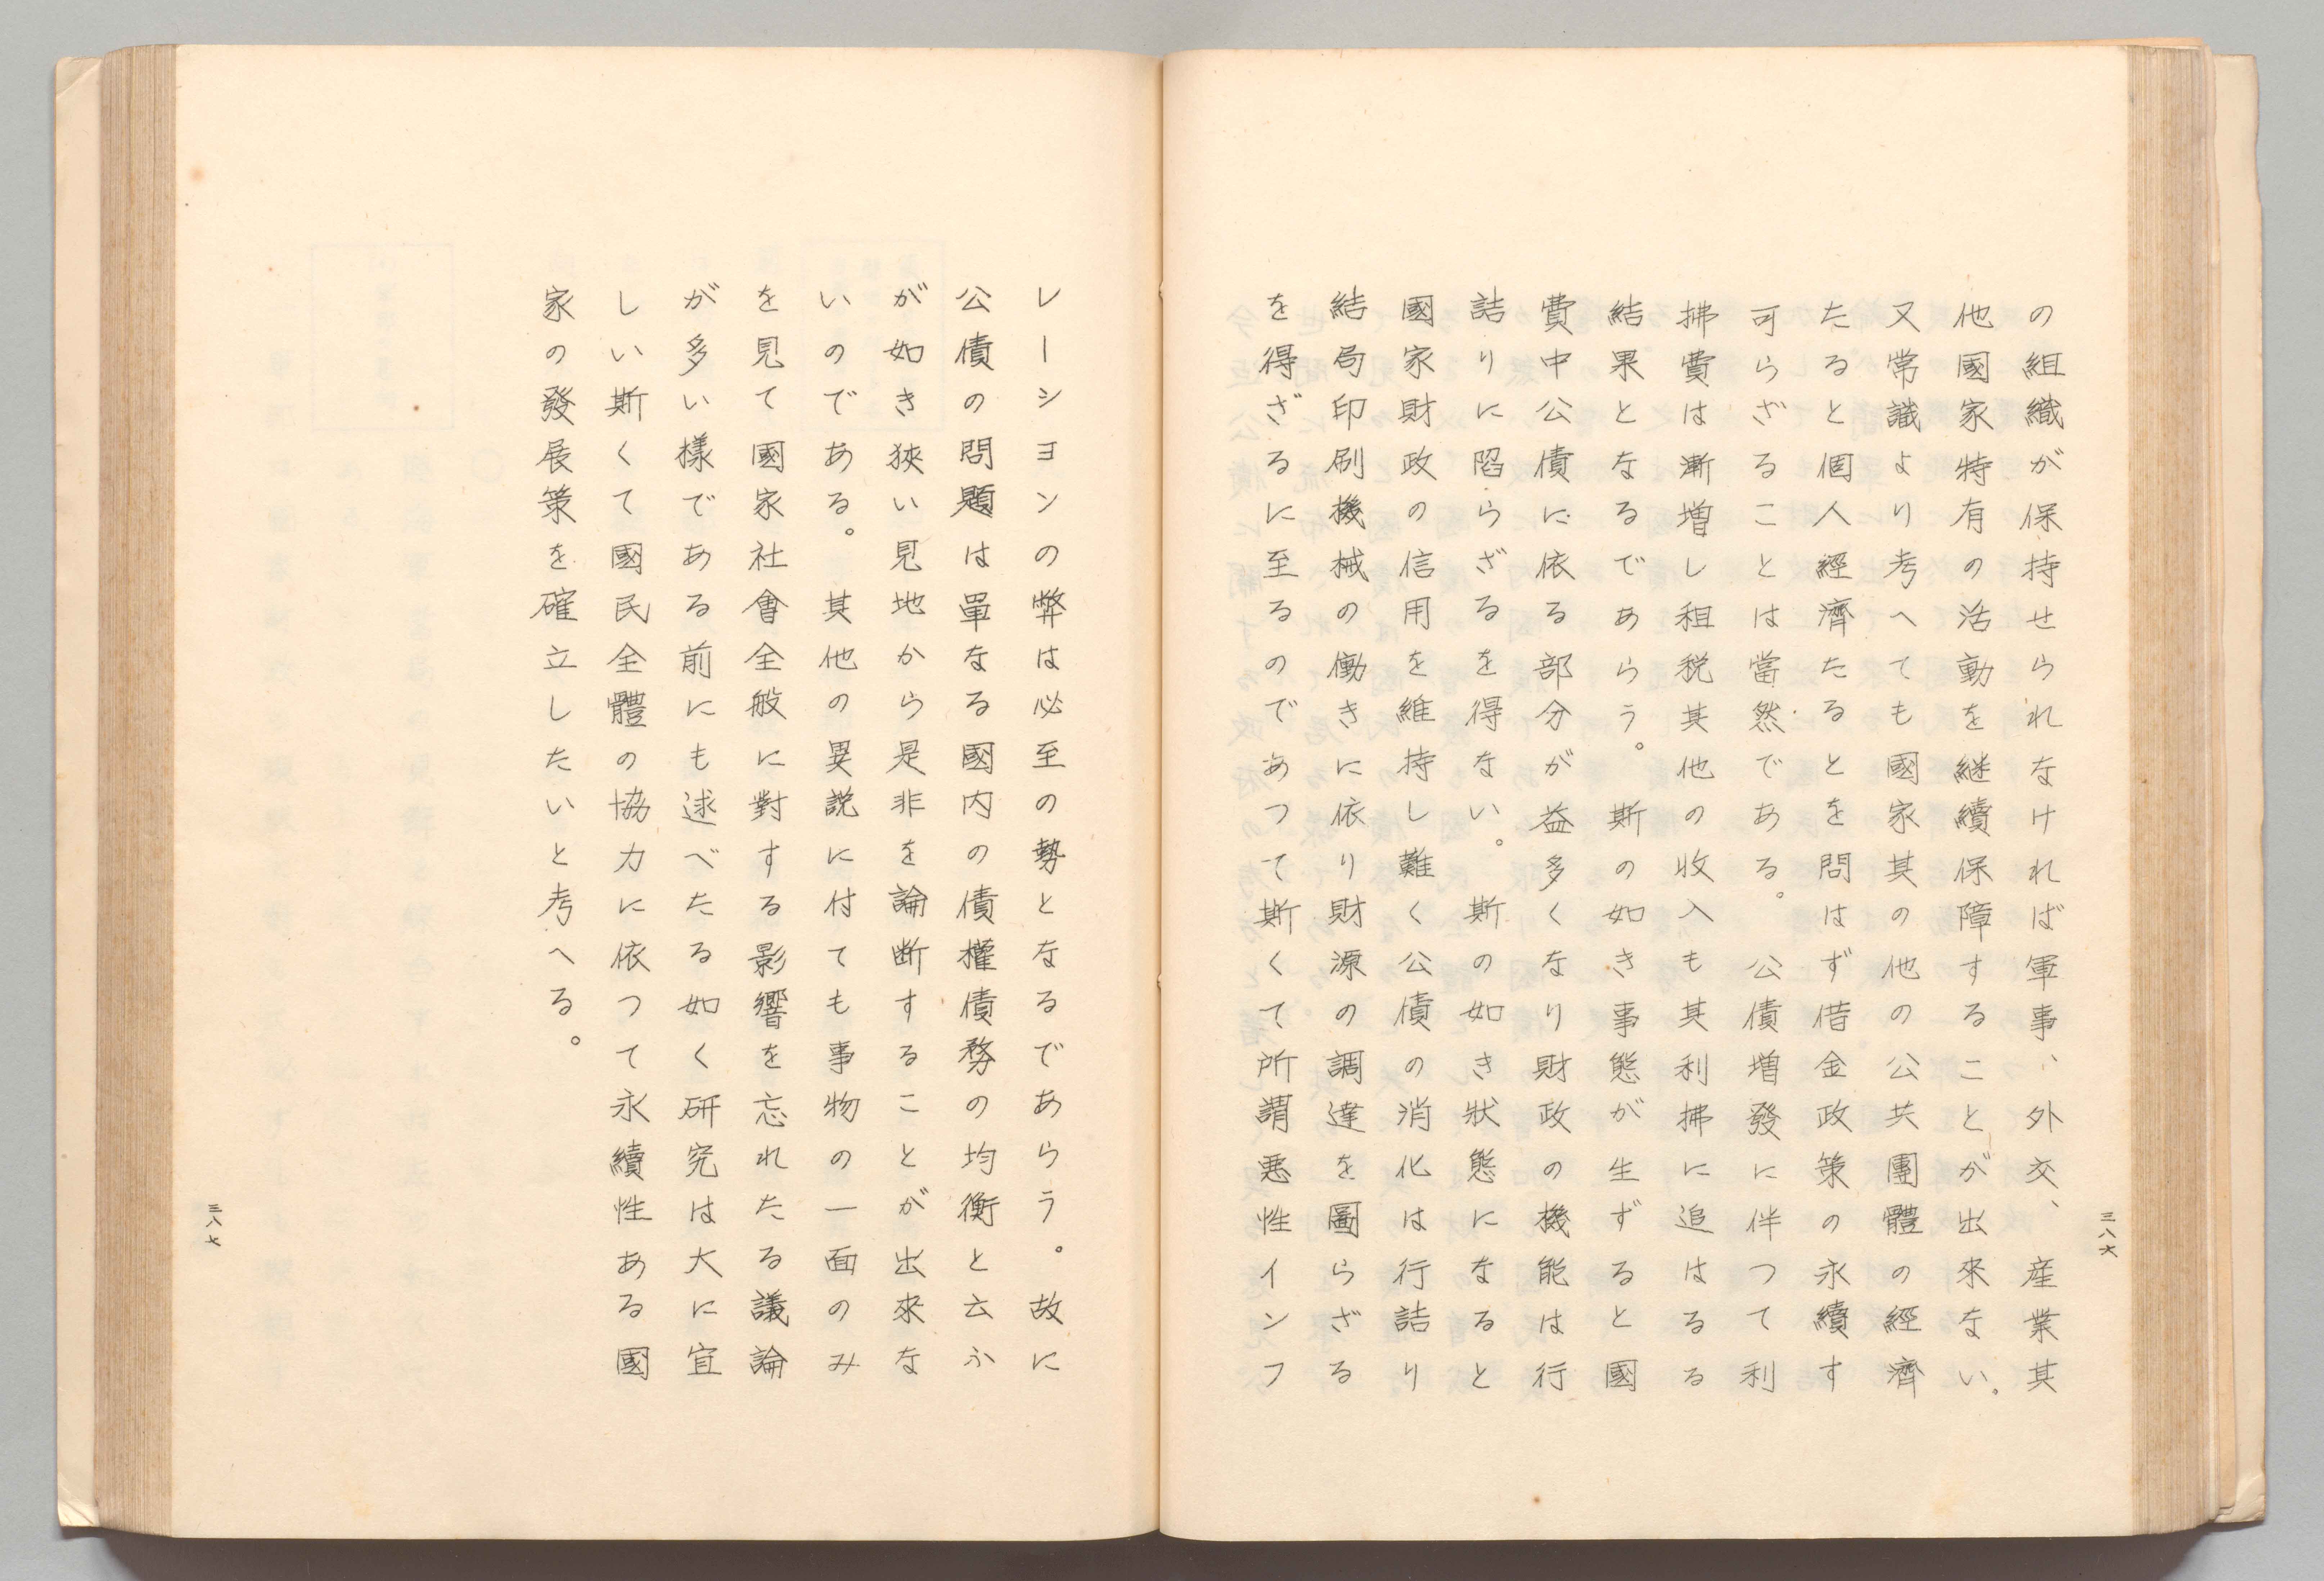 の組織が保持せられなければ軍事、外交、産業其
他國家特有の活動を継續保障することが出來ない。
又常識より考へても國家其の他の公共團體の經濟
たると個人經濟たるとを問はず借金政策の永續す
可らざることは當然である。公債增發に伴つて利
拂費は漸增し租税其他の收入も其利拂に追はるる
結果となるであらう。斯の如き事態が生ずると國
費中公債に依る部分が益多くなり財政の機能は行
詰りに陷らざるを得ない。斯の如き狀態になると
國家財政の信用を維持し難く公債の消化は行詰り
結局印刷機械の働きに依り財源の調達を圖らざる
を得ざるに至るのであつて斯くて所謂悪性インフ
三八六
レーシヨンの弊は必至の勢となるであらう。故に
公債の問題は單なる國内の債權債務の均衡と云ふ
が如き狹い見地から是非を論断することが出來な
いのである。其他の異説に付ても事物の一面のみ
を見て國家社會全般に對する影響を忘れたる議論
が多い様である前にも述べたる如く研究は大に宜
しい斯くて國民全體の協力に依つて永續性ある國
家の發展策を確立したいと考へる。
三八七